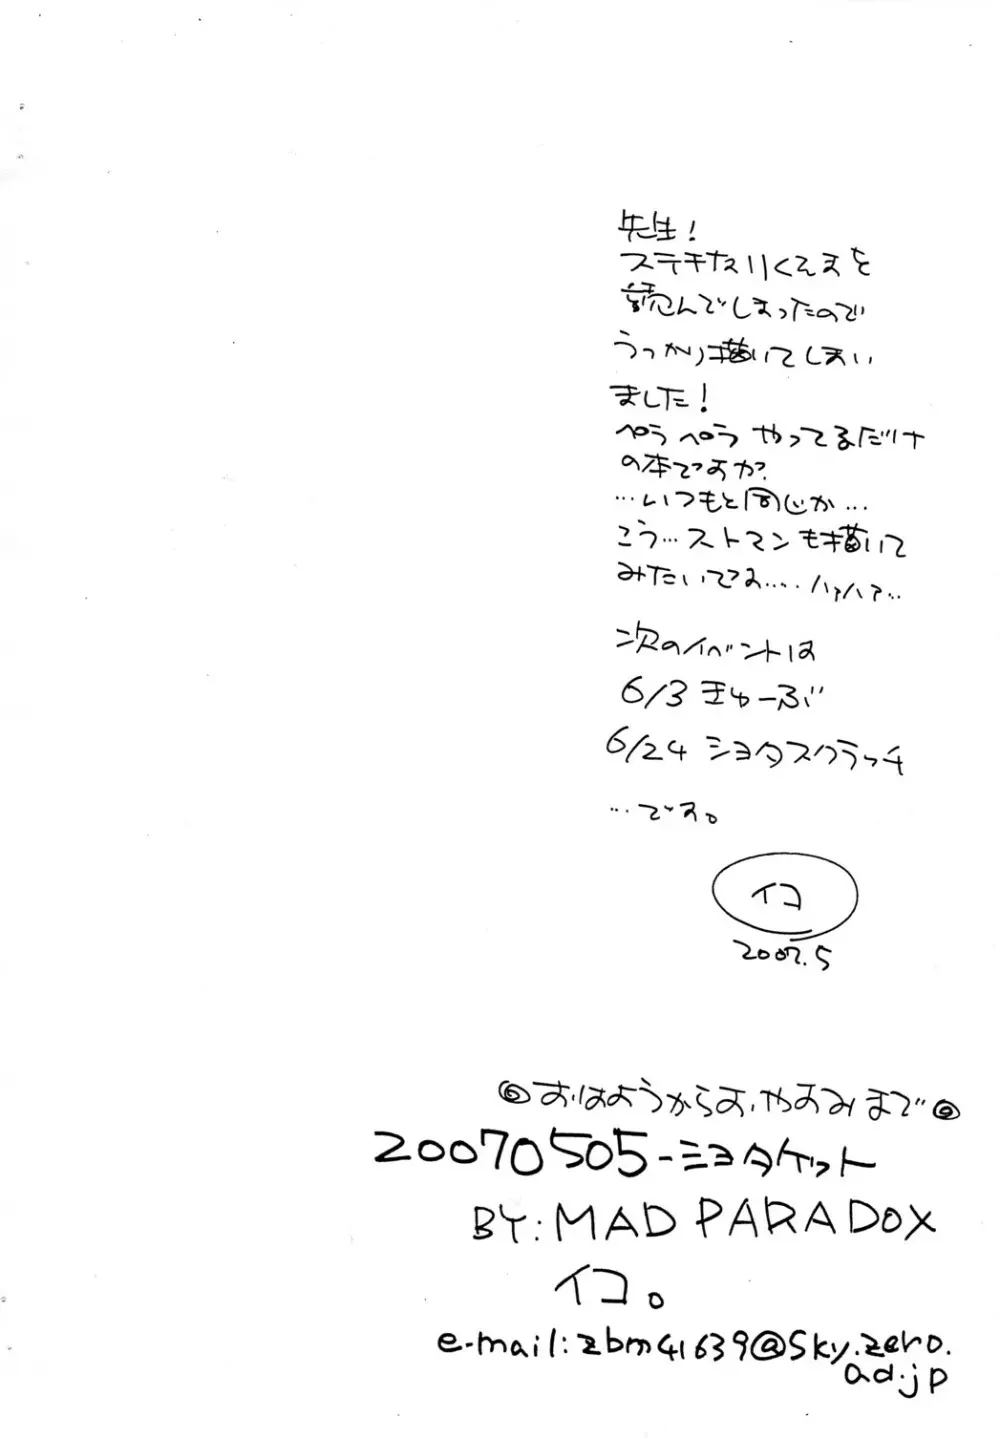 先生!
ステキな川くんまを
読んでしまったので
うっかり描いてしまい
ました!
ペラペラやってるだけ
の本ですか?
…いつもと同じか…
こう…ストマンも描いて
みたいでお…. ハァハァ…
次のイベントは
6/3 きゅーぶ
6/24 ショタスクラッチ
…です。
イコ
2007.5
◎おはようからおやすみまで◎
20070505-ショタケット
BY:MAD PARADOX
イコ。
e-mail:zbm41639@sky.zero.
ad.jp